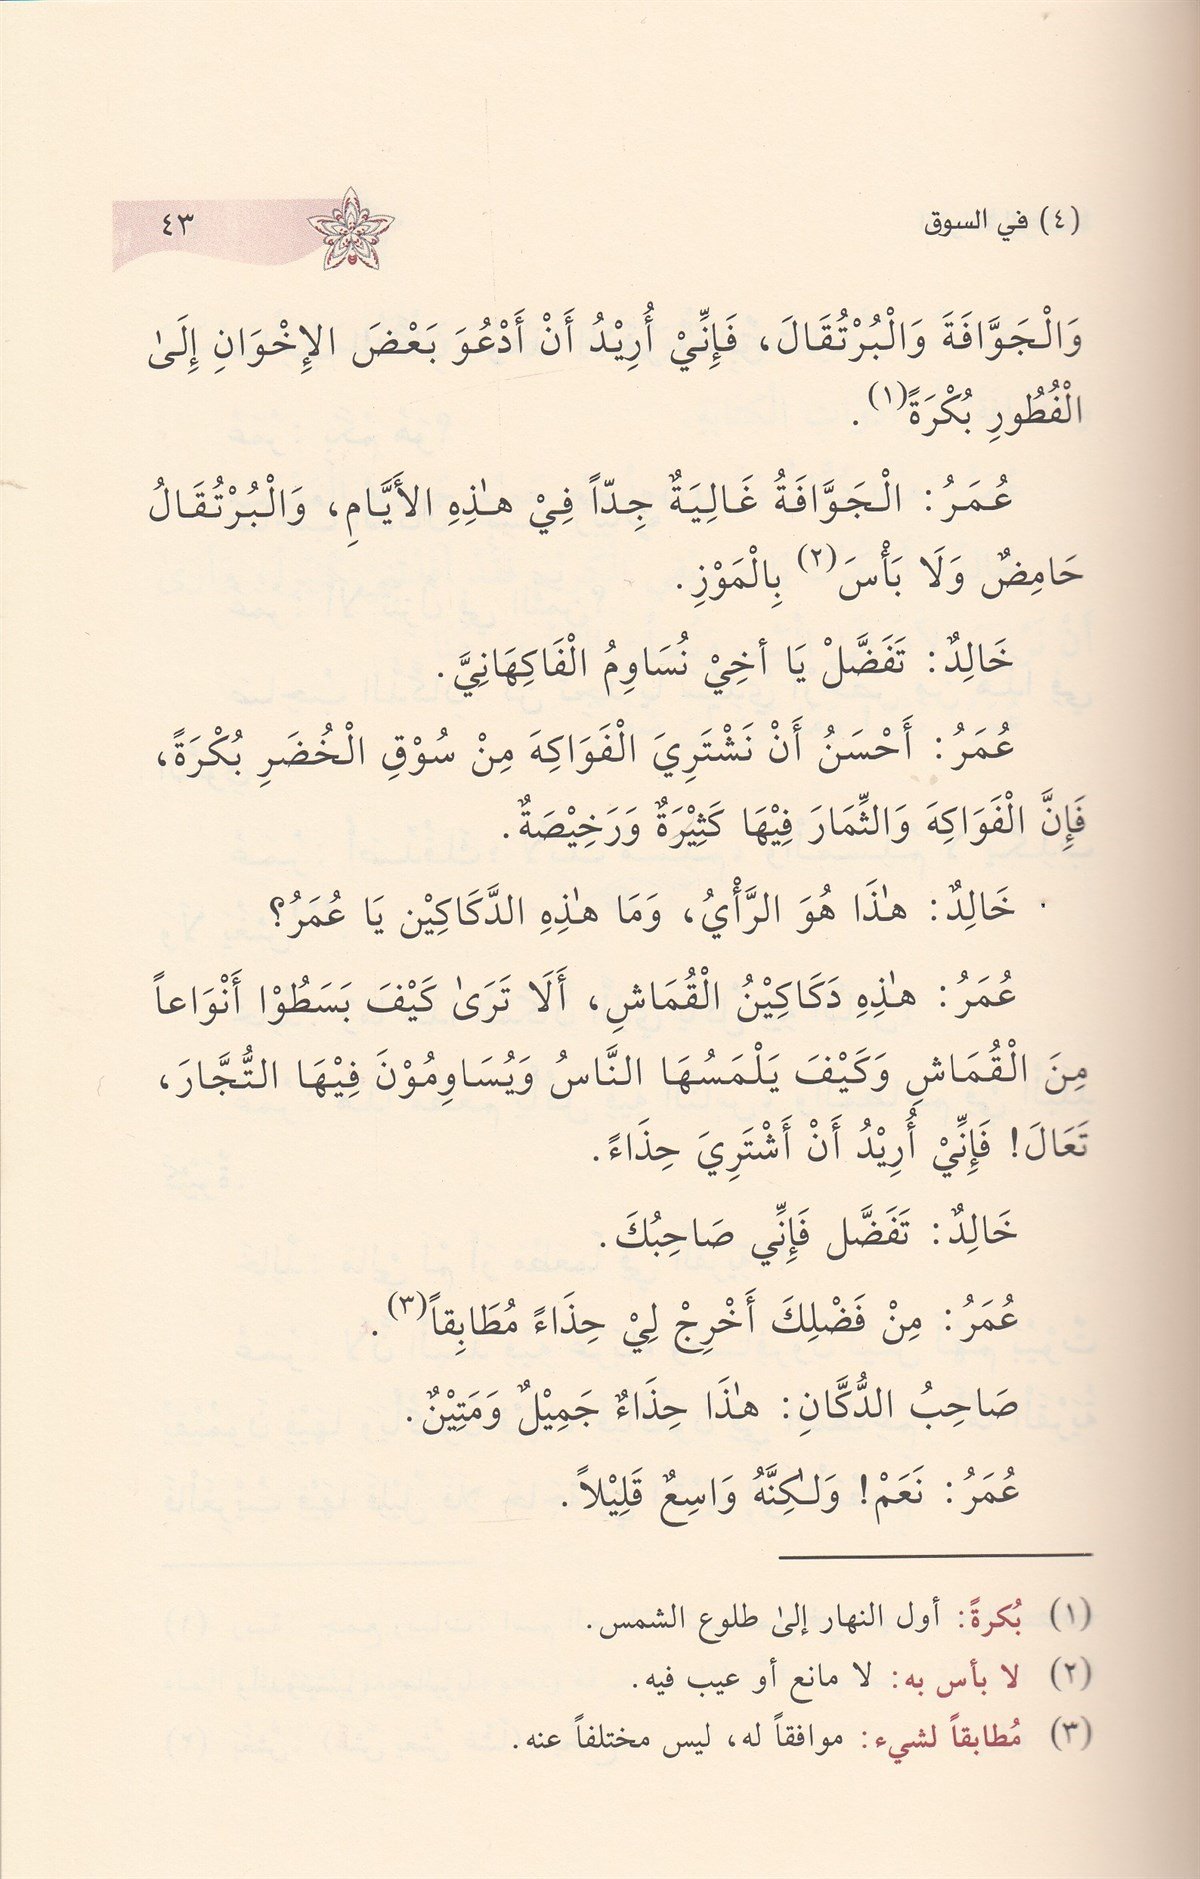 (٤) في السوق
٤٣
وَالْجَوَّافَةَ وَالْبُرْتُقَالَ، فَإِنِّيْ أُرِيْدُ أَنْ أَدْعُوَ بَعْضَ الإِخْوَانِ إِلَىٰ
الْفُطُورِ بُكْرَةً(١).
عُمَرُ: الْجَوَّافَةُ غَالِيَةٌ جِدّاً فِيْ هٰذِهِ الأَيَّامِ، وَالْبُرْتُقَالُ
حَامِضٌ وَلَا بَأْسَ(٢) بِالْمَوْزِ.
خَالِدٌ: تَفَضَّلْ يَا أخِيْ نُسَاوِمُ الْفَاكِهَانِيَّ.
عُمَرُ: أَحْسَنُ أَنْ نَشْتَرِيَ الْفَوَاكِهَ مِنْ سُوْقِ الْخُضَرِ بُكْرَةً،
فَإِنَّ الْفَوَاكِهَ وَالثِّمَارَ فِيْهَا كَثِيْرَةٌ وَرَخِيْصَةٌ.
خَالِدٌ: هٰذَا هُوَ الرَّأْيُ، وَمَا هٰذِهِ الدَّكَاكِيْن يَا عُمَرُ؟
عُمَرُ: هٰذِهِ دَكَاكِيْنُ الْقُمَاشِ، أَلَا تَرَىٰ كَيْفَ بَسَطُوْا أَنْوَاعاً
مِنَ الْقُمَاشِ وَكَيْفَ يَلْمَسُهَا النَّاسُ وَيُسَاوِمُوْنَ فِيْهَا التُّجَّارَ،
تَعَالَ! فَإِنِّيْ أُرِيْدُ أَنْ أَشْتَرِيَ حِذَاءً.
خَالِدٌ: تَفَضَّل فَإِنِّي صَاحِبُكَ.
عُمَرُ: مِنْ فَضْلِكَ أَخْرِجْ لِيْ حِذَاءً مُطَابِقاً(٣).
صَاحِبُ الدُّكَّانِ: هٰذَا حِذَاءٌ جَمِيْلٌ وَمَتِيْنٌ.
عُمَرُ: نَعَمْ! وَلٰكِنَّهُ وَاسِعٌ قَلِيْلاً.
(١) بُكرةً: أول النهار إلىٰ طلوع الشمس.
(٢) لا بأس به: لا مانع أو عيب فيه.
(٣) مُطابقاً لشيء: موافقاً له، ليس مختلفاً عنه.